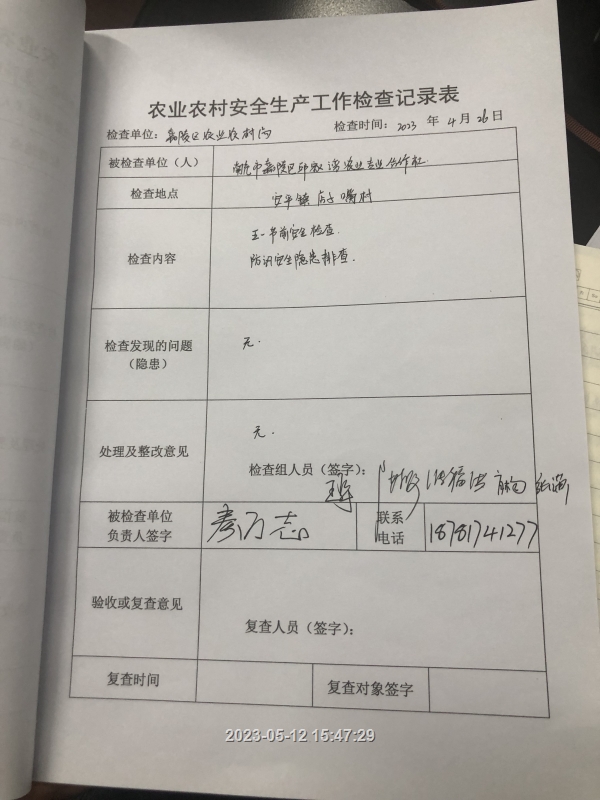 农业农村安全生产工作检查记录表
检查单位：嘉陵区农业农村局 检查时间：2023 年 4 月 26 日
被检查单位（人） 南充市嘉陵区 农业专业合作社
检查地点 安平镇 嘴村
检查内容 五一节前安全检查.
防汛安全隐患排查.
检查发现的问题
（隐患） 无.
处理及整改意见 无.
检查组人员（签字）：
被检查单位
负责人签字 秦万志 联系
电话 18781741277
验收或复查意见
复查人员（签字）：
复查时间 复查对象签字
2023-05-12 15:47:29